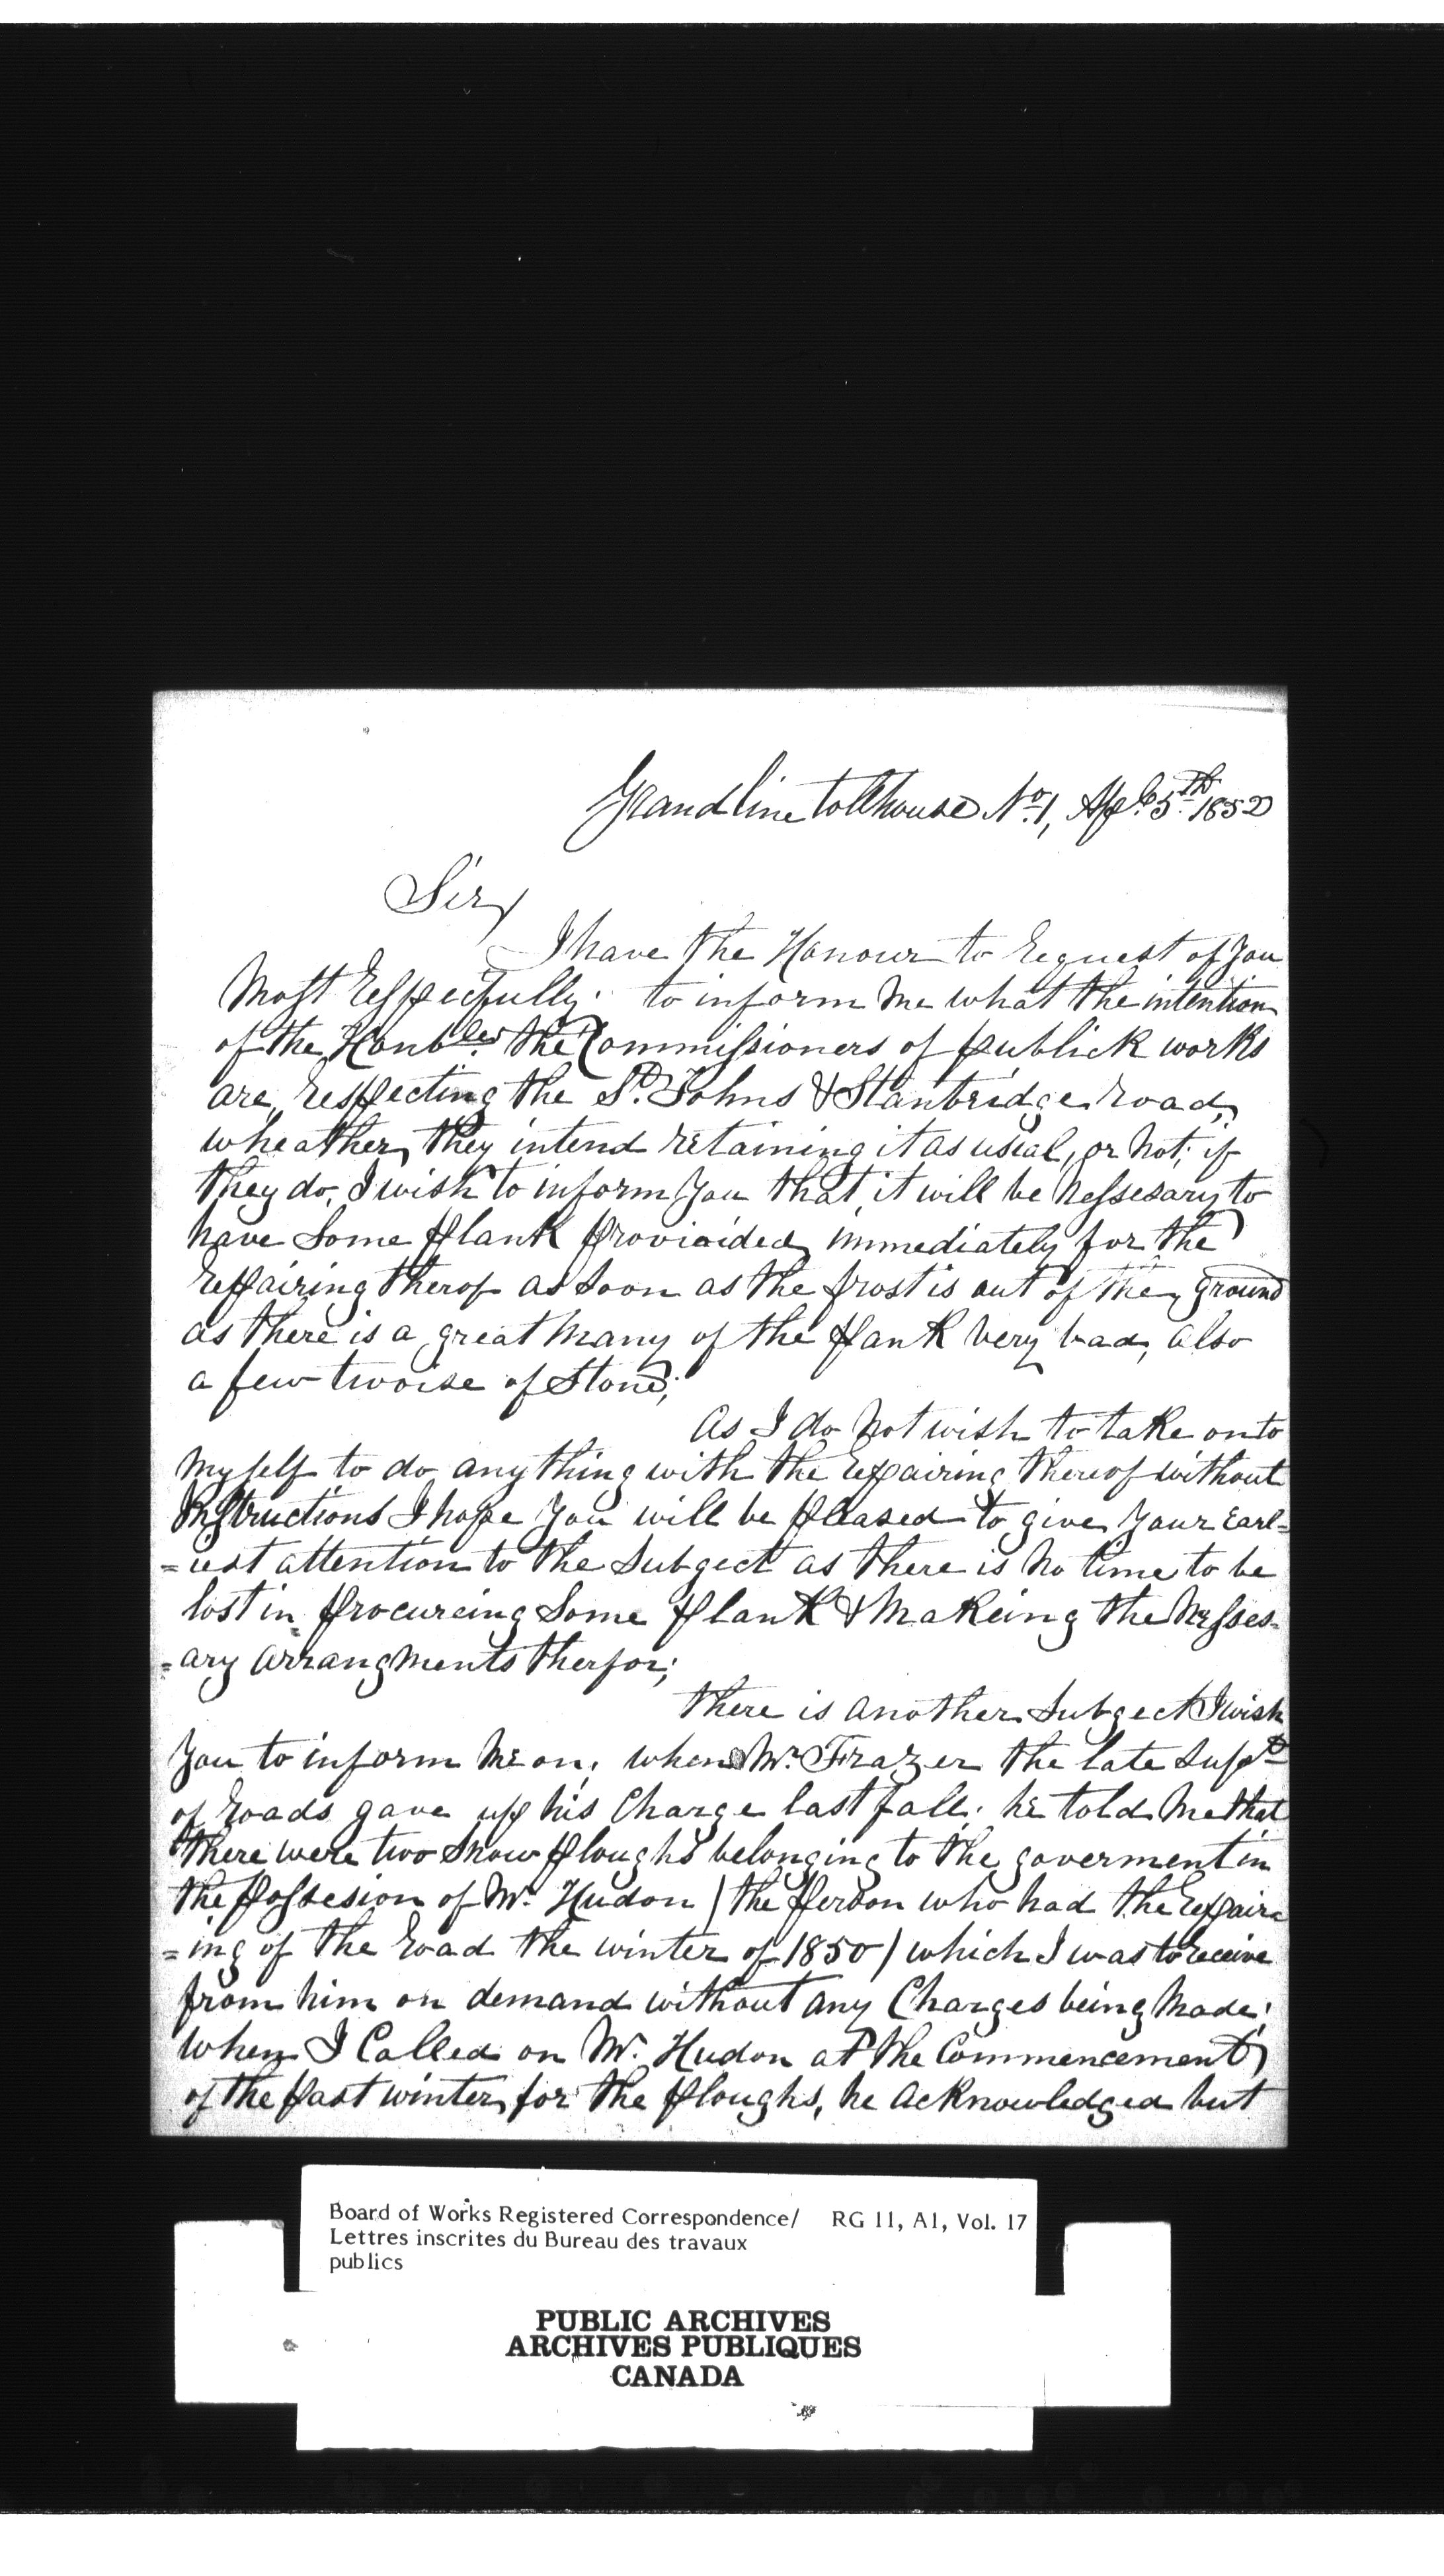 Grand line tollhouse No. 1, Apl. 5th. 1852
Sir,
I have the Honour to request of you
Most respectfully to inform me what the intention
of the Honbles. the Commissioners of publick works
are, respecting the St. Johns & Stanbridge road,
wheather they intend retaining it as usual, or not; if
they do, I wish to inform you that it will be nessesary to
have some plank provioided immediately for the
repairing therof as soon as the frost is out of the ground
as there is a great many of the plank very bad, also
a few twoise of stone;
As I do not wish to take onto
myself to do anything with the repairing thereof without
Instructions I hope you will be pleased to give your earl=
=iest attention to the subject as there is no time to be
lost in procureing some plank & makeing the nesses=
=ary arrangments therfor;
there is another subject I wish
you to inform me on, when Mr. Frazer the late Supt
of roads gave up his charge last fall; he told me that
there were two snow ploughs belonging to the goverment in
the possesion of Mr. Hudon / the person who had the repair=
=ing of the road the winter of 1850 / which I was to receive
from him on demand without any charges being made;
when I called on Mr. Hudon at the commencement
of the past winter, for the ploughs, he acknowledged but
Board of Works Registered Correspondence/ RG 11, A1, Vol. 17
Lettres inscrites du Bureau des travaux
publics
PUBLIC ARCHIVES
ARCHIVES PUBLIQUES
CANADA